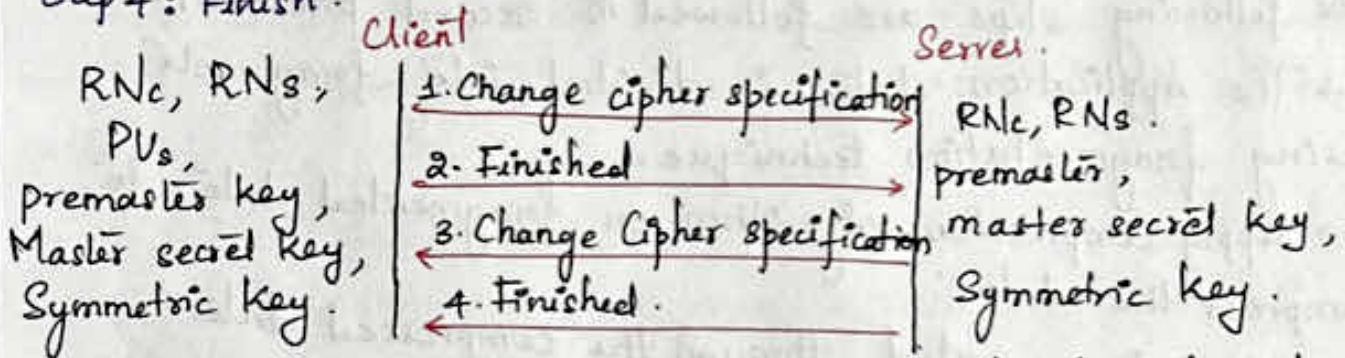 Step 4: Finish.
Client
Server.
RNc, RNs,
PUs,
premaster key,
Master secret key,
Symmetric key.
1. Change cipher specification
2. Finished
3. Change Cipher specification
4. Finished.
RNc, RNs.
premaster,
master secret key,
Symmetric key.